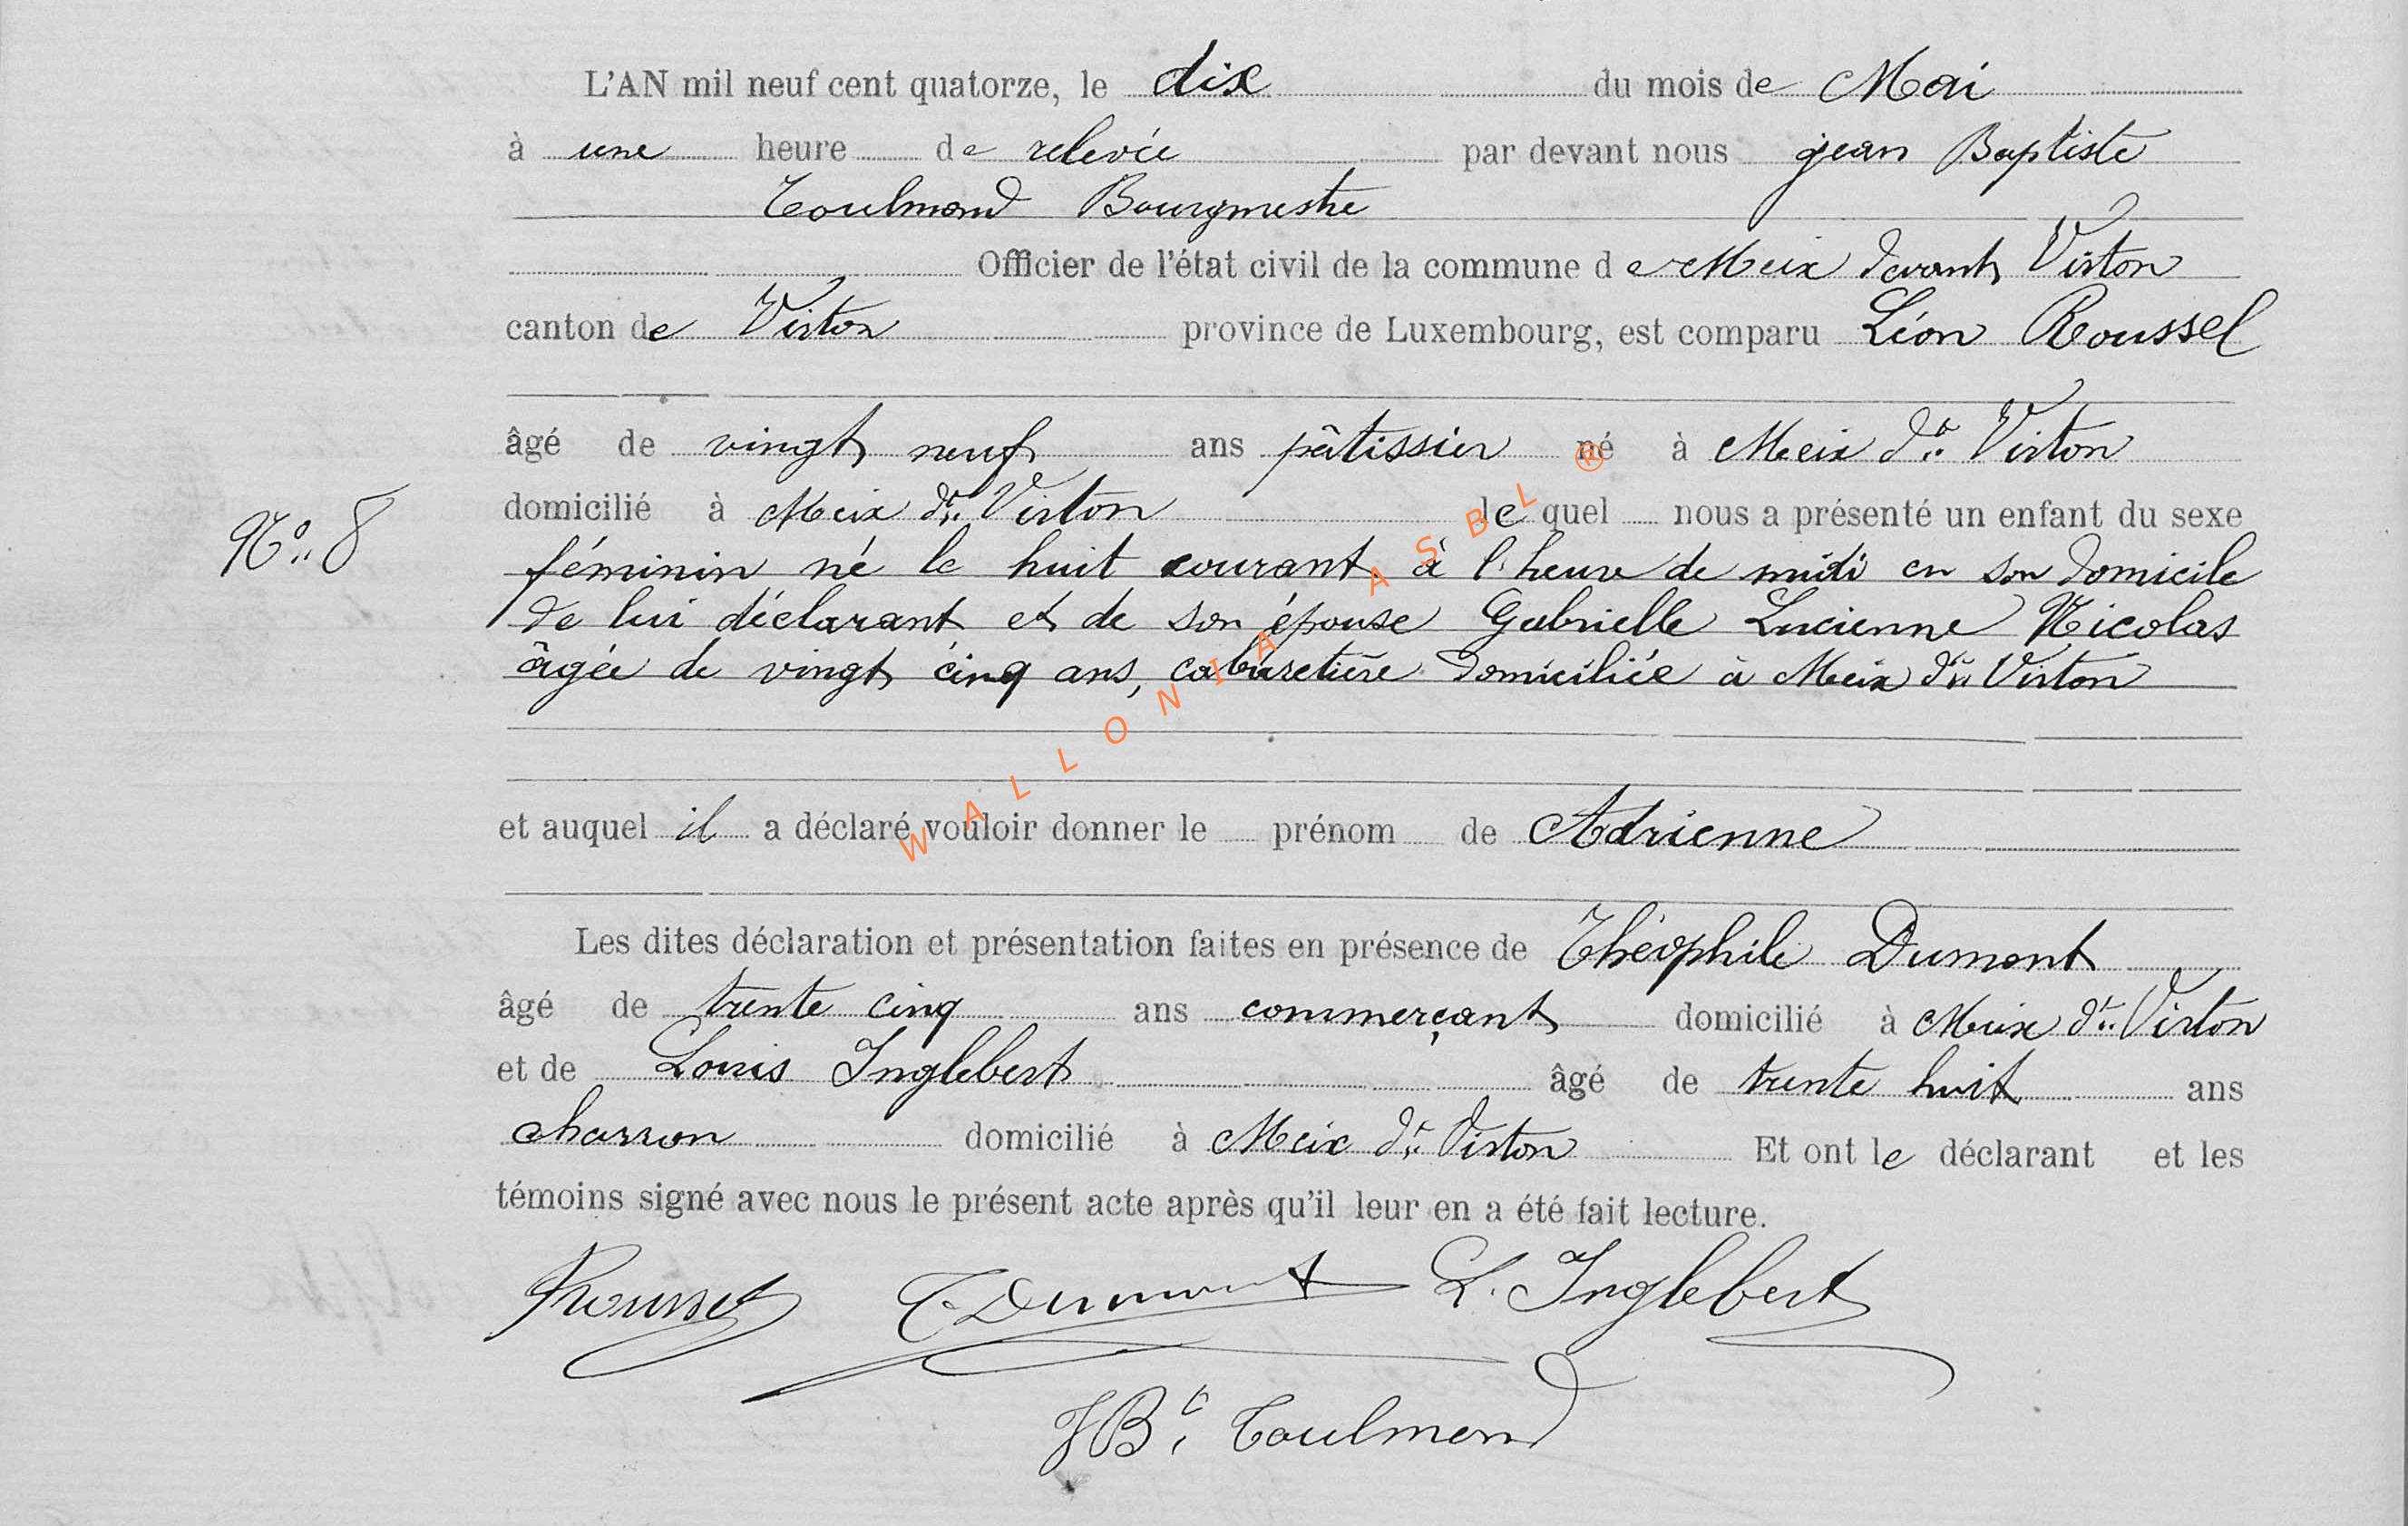 L'AN mil neuf cent quatorze, le dix du mois de Mai
à une heure de relevée par devant nous jean Baptiste
Toulmond Bourgmestre
Officier de l'état civil de la commune de Meix devant Virton
canton de Virton province de Luxembourg, est comparu Léon Roussel
âgé de vingt neuf ans pâtissier né à Meix dt Virton
domicilié à Meix dt Virton lequel nous a présenté un enfant du sexe
No 8
féminin né le huit courant à l'heure de midi en son domicile
de lui déclarant et de son épouse Gabrielle Lucienne Nicolas
âgée de vingt cinq ans, cabaretière domiciliée à Meix dt Virton
et auquel il a déclaré vouloir donner le prénom de Adrienne
Les dites déclaration et présentation faites en présence de Théophile Dumont
âgé de trente cinq ans commerçant domicilié à Meix dt Virton
et de Louis Inglebert âgé de trente huit ans
charron domicilié à Meix dt Virton Et ont le déclarant et les
témoins signé avec nous le présent acte après qu'il leur en a été fait lecture.
Roussel T. Dumont L. Inglebert
JBt Toulmond
WALLONIA ASBL ®